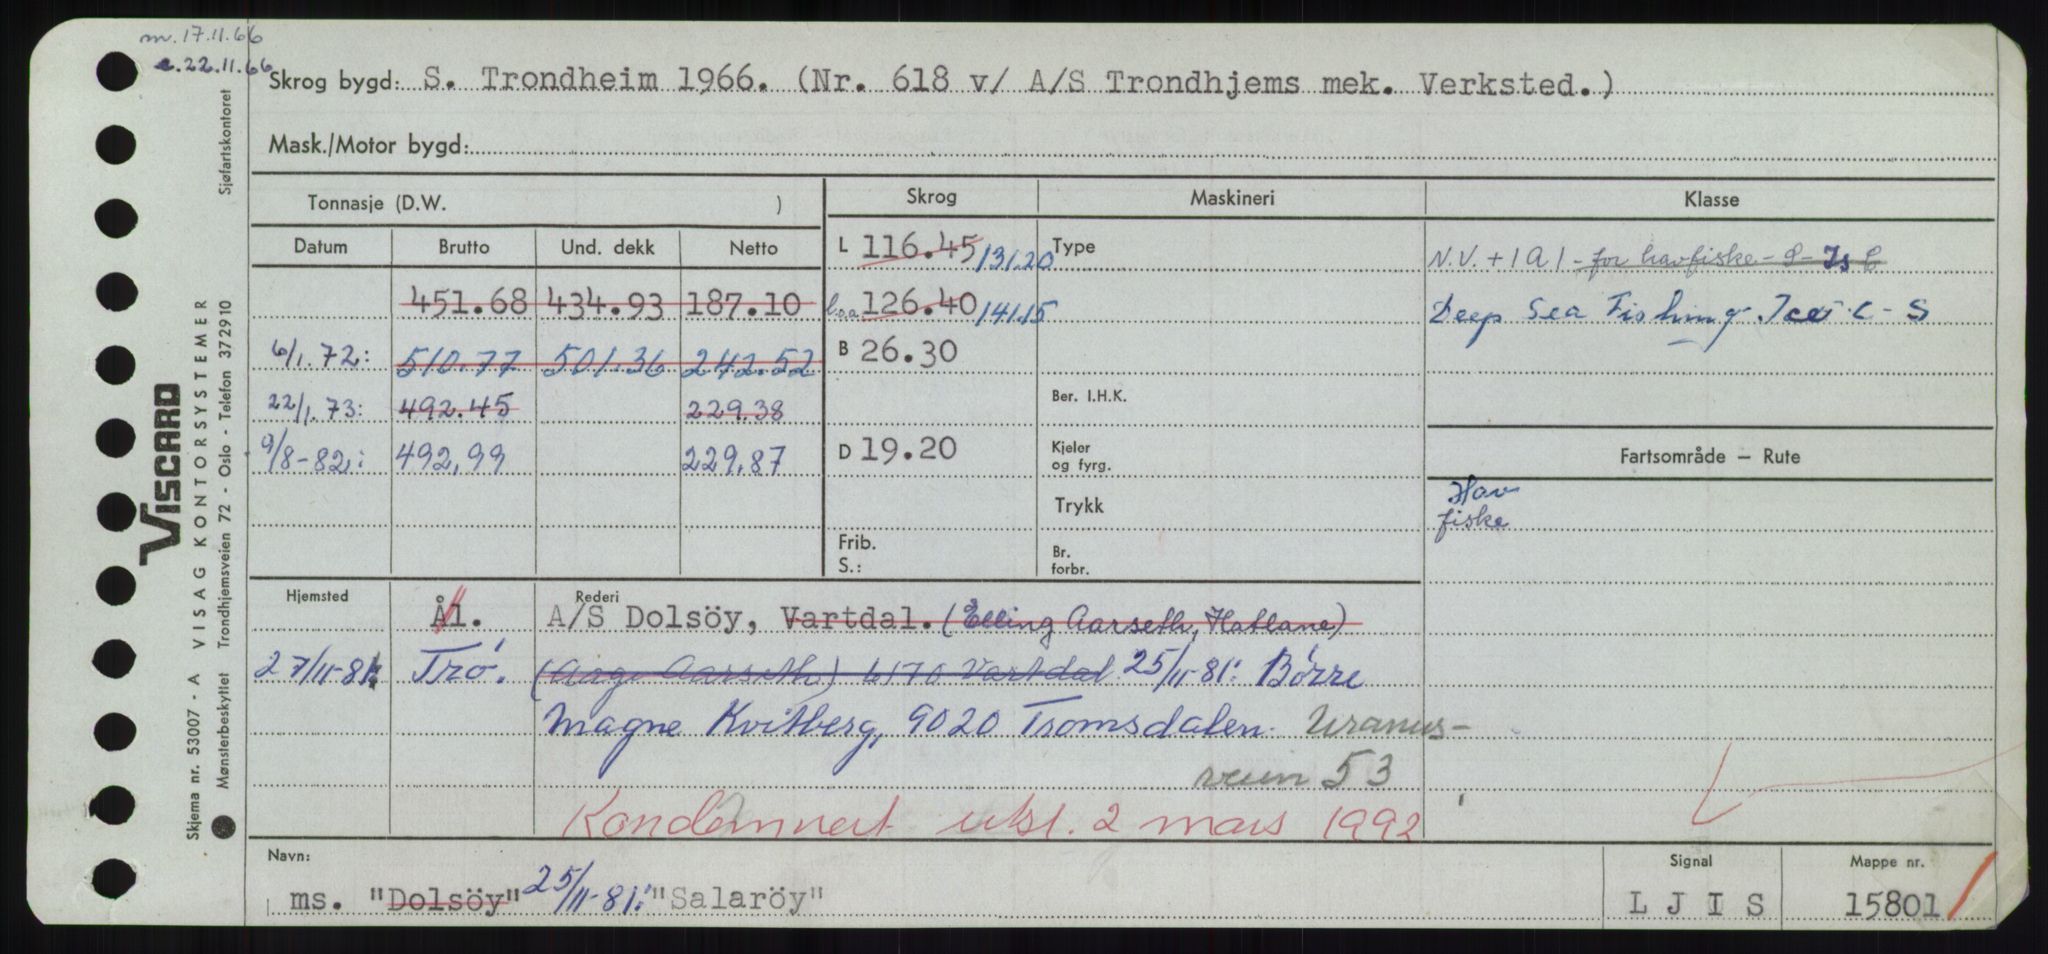 m. 17.11.66
e. 22.11.66
Skrog bygd: S. Trondheim 1966. (Nr. 618 v/ A/S Trondhjems mek. Verksted.)
Mask./Motor bygd:
Tonnasje (D.W. )
Skrog
Maskineri
Klasse
Datum Brutto Und. dekk Netto
451.68 434.93 187.10
6/1. 72: 510.77 501.36 242.52
22/1. 73: 492.45 229.38
9/8-82: 492,99 229,87
L 116.45 131.20
l.o.a. 126.40 141.15
B 26.30
D 19.20
Frib.
S.:
Type
Ber. I.H.K.
Kjeler
og fyrg.
Trykk
Br.
forbr.
N.V. + 1A1 - for havfiske - S - Is C
Deep Sea Fishing Ice C - S
Fartsområde — Rute
Hav
fiske
Hjemsted Ål. Rederi
A/S Dolsöy, Vartdal. (Elling Aarseth, Hatlane)
27/11-81: Trö. (Aage Aarseth) 6170 Vartdal 25/11-81: Börre
Magne Kvitberg, 9020 Tromsdalen. Uranus-
veien 53
Kondemnert utsl. 2 mars 1992
Navn:
ms. "Dolsöy" 25/11-81: "Salaröy"
Signal
L J I S
Mappe nr.
15801
VISCARD
Skjema nr. 53007 - A VISAG KONTORSYSTEMER
Mønsterbeskyttet Trondhjemsveien 72 - Oslo - Telefon 372910
Sjøfartskontoret